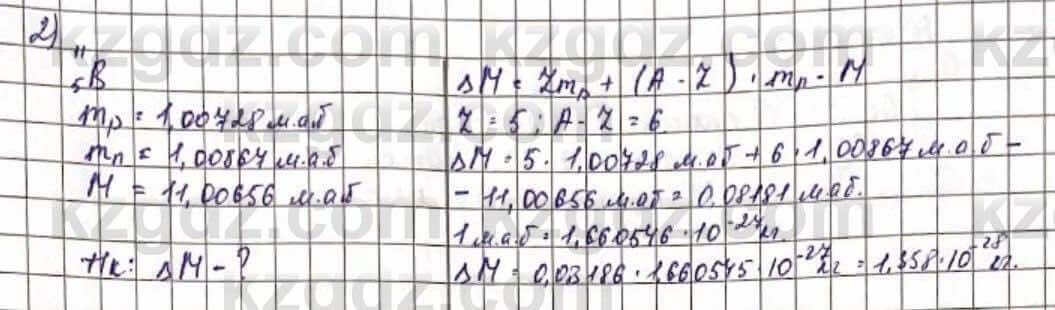 2)
¹¹₅B
mp = 1,00728 м.а.б
mn = 1,00867 м.а.б
M = 11,00656 м.а.б
Тк: ΔM - ?
ΔM = Zmp + (A - Z) · mn - M
Z = 5; A - Z = 6
ΔM = 5 · 1,00728 м.а.б + 6 · 1,00867 м.а.б -
- 11,00656 м.а.б = 0,08181 м.а.б.
1 м.а.б = 1,660546 · 10⁻²⁷ кг.
ΔM = 0,03186 · 1,660545 · 10⁻²⁷ кг = 1,358 · 10⁻²⁸ кг.
kzgdz.com